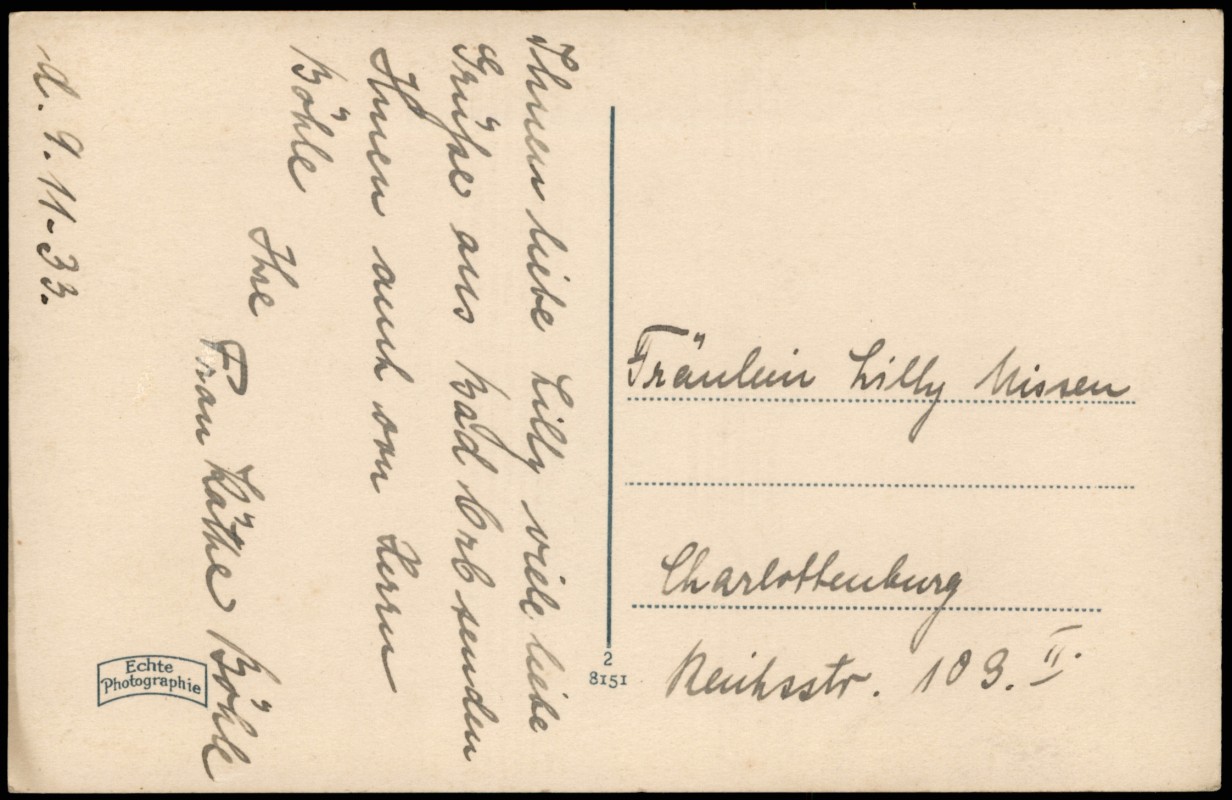 Ihnen liebe Lilly viele liebe
Grüße aus Bad Orb senden
Ihnen auch von Herrn
Böhle
Ihre
Frau Käthe Böhle
d. 9.11-33.
Echte
Photographie
2
8151
Fräulein Lilly Nissen
Charlottenburg
Reichsstr. 103. II.